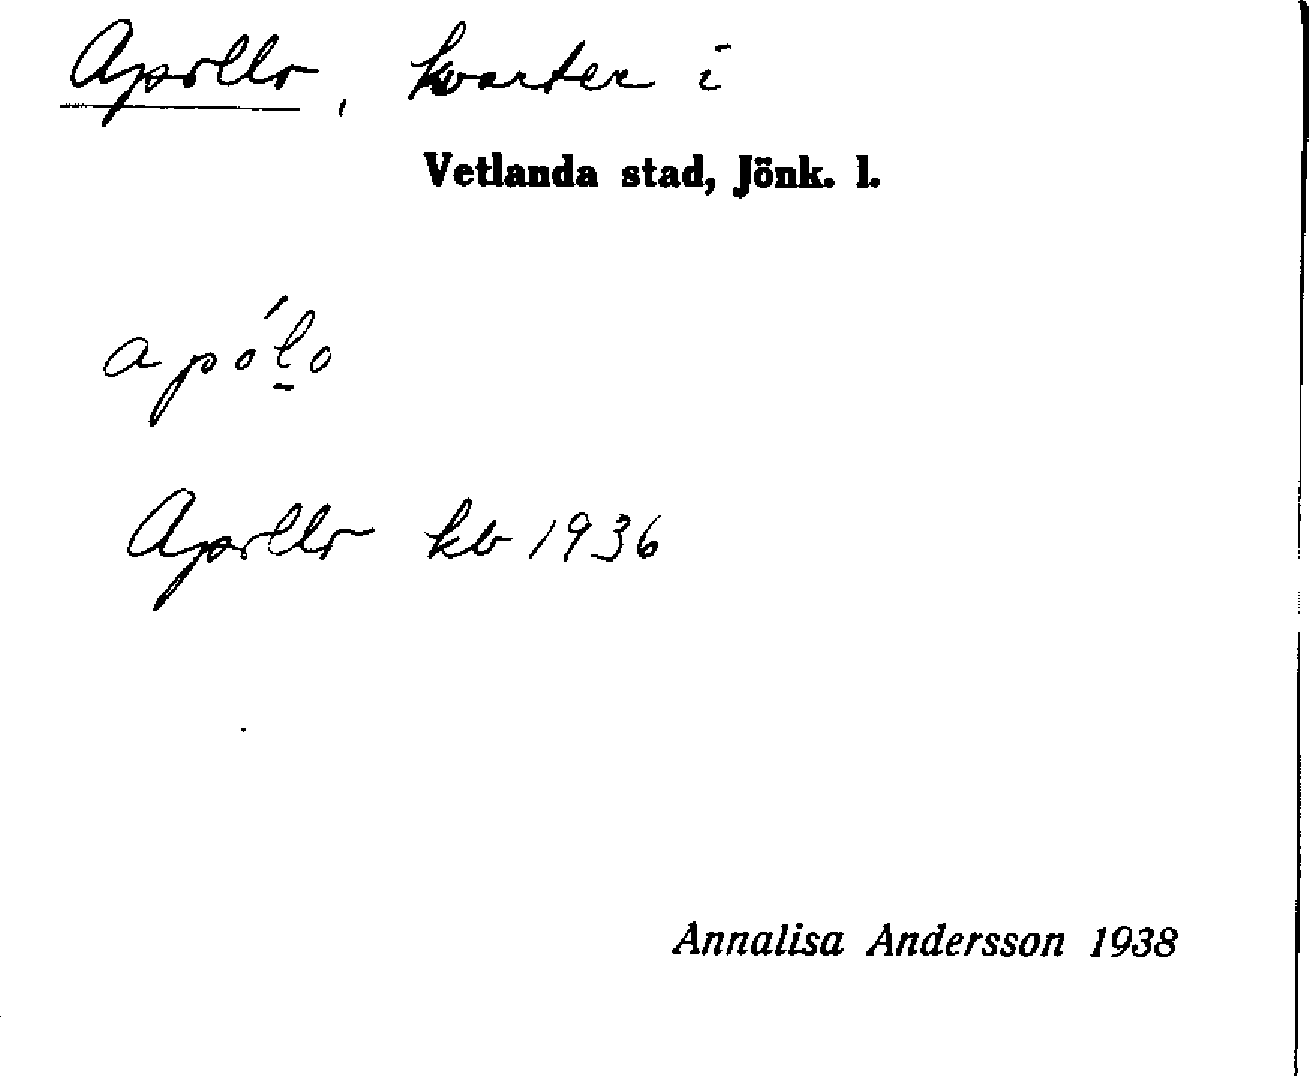 Apollo, kvarter i
Vetlanda stad, Jönk. l.
apól̠o
Apollo kb 1936
Annalisa Andersson 1938